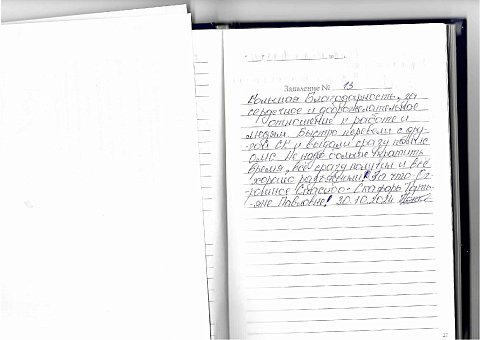 Заявление № 13
Большая Благодарность, за
сердечное и доброжелательное
отношение к работе и
людям. Быстро перевели с дру-
-гой СК и выдали сразу новые
Не надо больше тратить
время, всё сразу получили и всё
хорошо разъяснили! За что Ог-
-ромное Спасибо - Скафарь Тать-
-яне Павловне! 30.10.2024
27